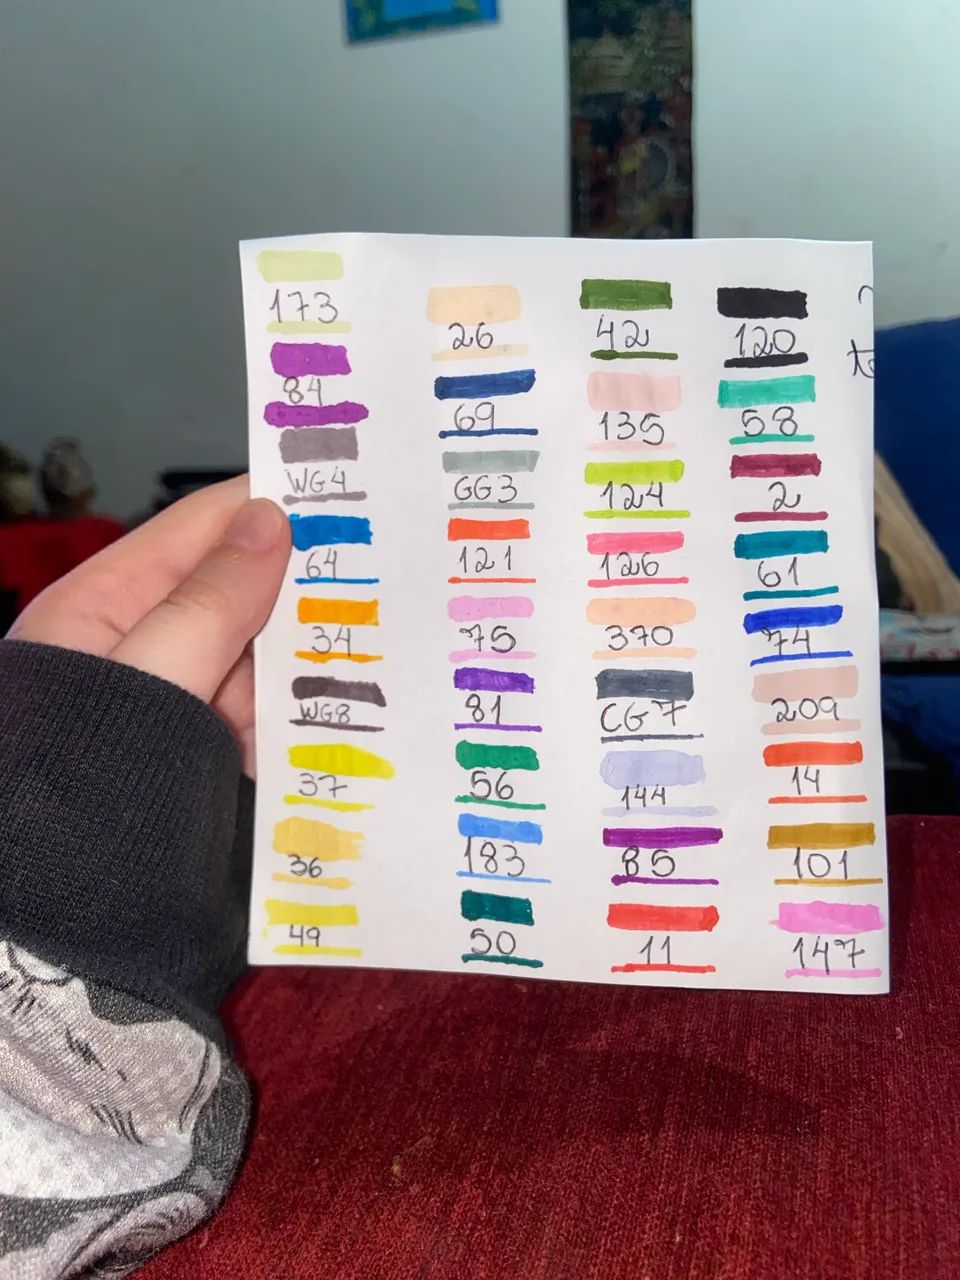 173
84
WG4
64
34
WG8
37
36
49
26
69
GG3
121
75
81
56
183
50
42
135
124
126
370
CG7
144
85
11
120
58
2
61
74
209
14
101
147